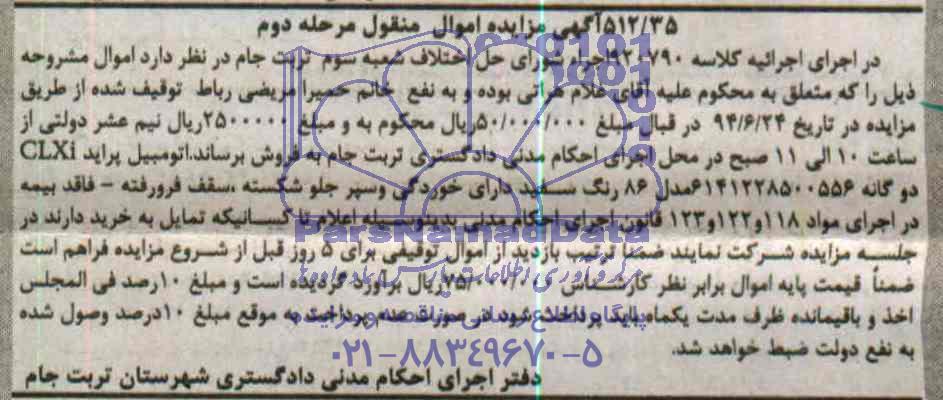 ۵۱۲/۳۵آگهی مزایده اموال منقول مرحله دوم
در اجرای اجرائیه کلاسه ۹۲۰۷۹۰اجراء شورای حل اختلاف شعبه سوم تربت جام در نظر دارد اموال مشروحه
ذیل را که متعلق به محکوم علیه آقای غلام هراتی بوده و به نفع خانم حمیرا مریضی رباط توقیف شده از طریق
مزایده در تاریخ ۹۴/۶/۲۴ در قبال مبلغ ۵۰/۰۰۰/۰۰۰ریال محکوم به و مبلغ ۲۵۰۰۰۰۰ریال نیم عشر دولتی از
ساعت ۱۰ الی ۱۱ صبح در محل اجرای احکام مدنی دادگستری تربت جام به فروش برساند.اتومبیل پراید CLXi
دو گانه ۶۱۴۱۲۲۸۵۰۰۵۵۶مدل ۸۶ رنگ سفید دارای خوردگی وسپر جلو شکسته ،سقف فرورفته - فاقد بیمه
در اجرای مواد ۱۱۸و۱۲۲و۱۲۳ قانون اجرای احکام مدنی بدینوسیله اعلام تا کسانیکه تمایل به خرید دارند در
جلسه مزایده شرکت نمایند ضمنا ترتیب بازدید از اموال توقیفی برای ۵ روز قبل از شروع مزایده فراهم است
ضمناً قیمت پایه اموال برابر نظر کارشناس ۷۵/۰۰۰/۰۰۰ریال برآورد گردیده است و مبلغ ۱۰درصد فی المجلس
اخذ و باقیمانده ظرف مدت یکماه باید پرداخت شود در صورت عدم پرداخت به موقع مبلغ ۱۰درصد وصول شده
به نفع دولت ضبط خواهد شد.
دفتر اجرای احکام مدنی دادگستری شهرستان تربت جام
ParsNamadData
۰۲۱-۸۸۳۴۹۶۷۰-۵